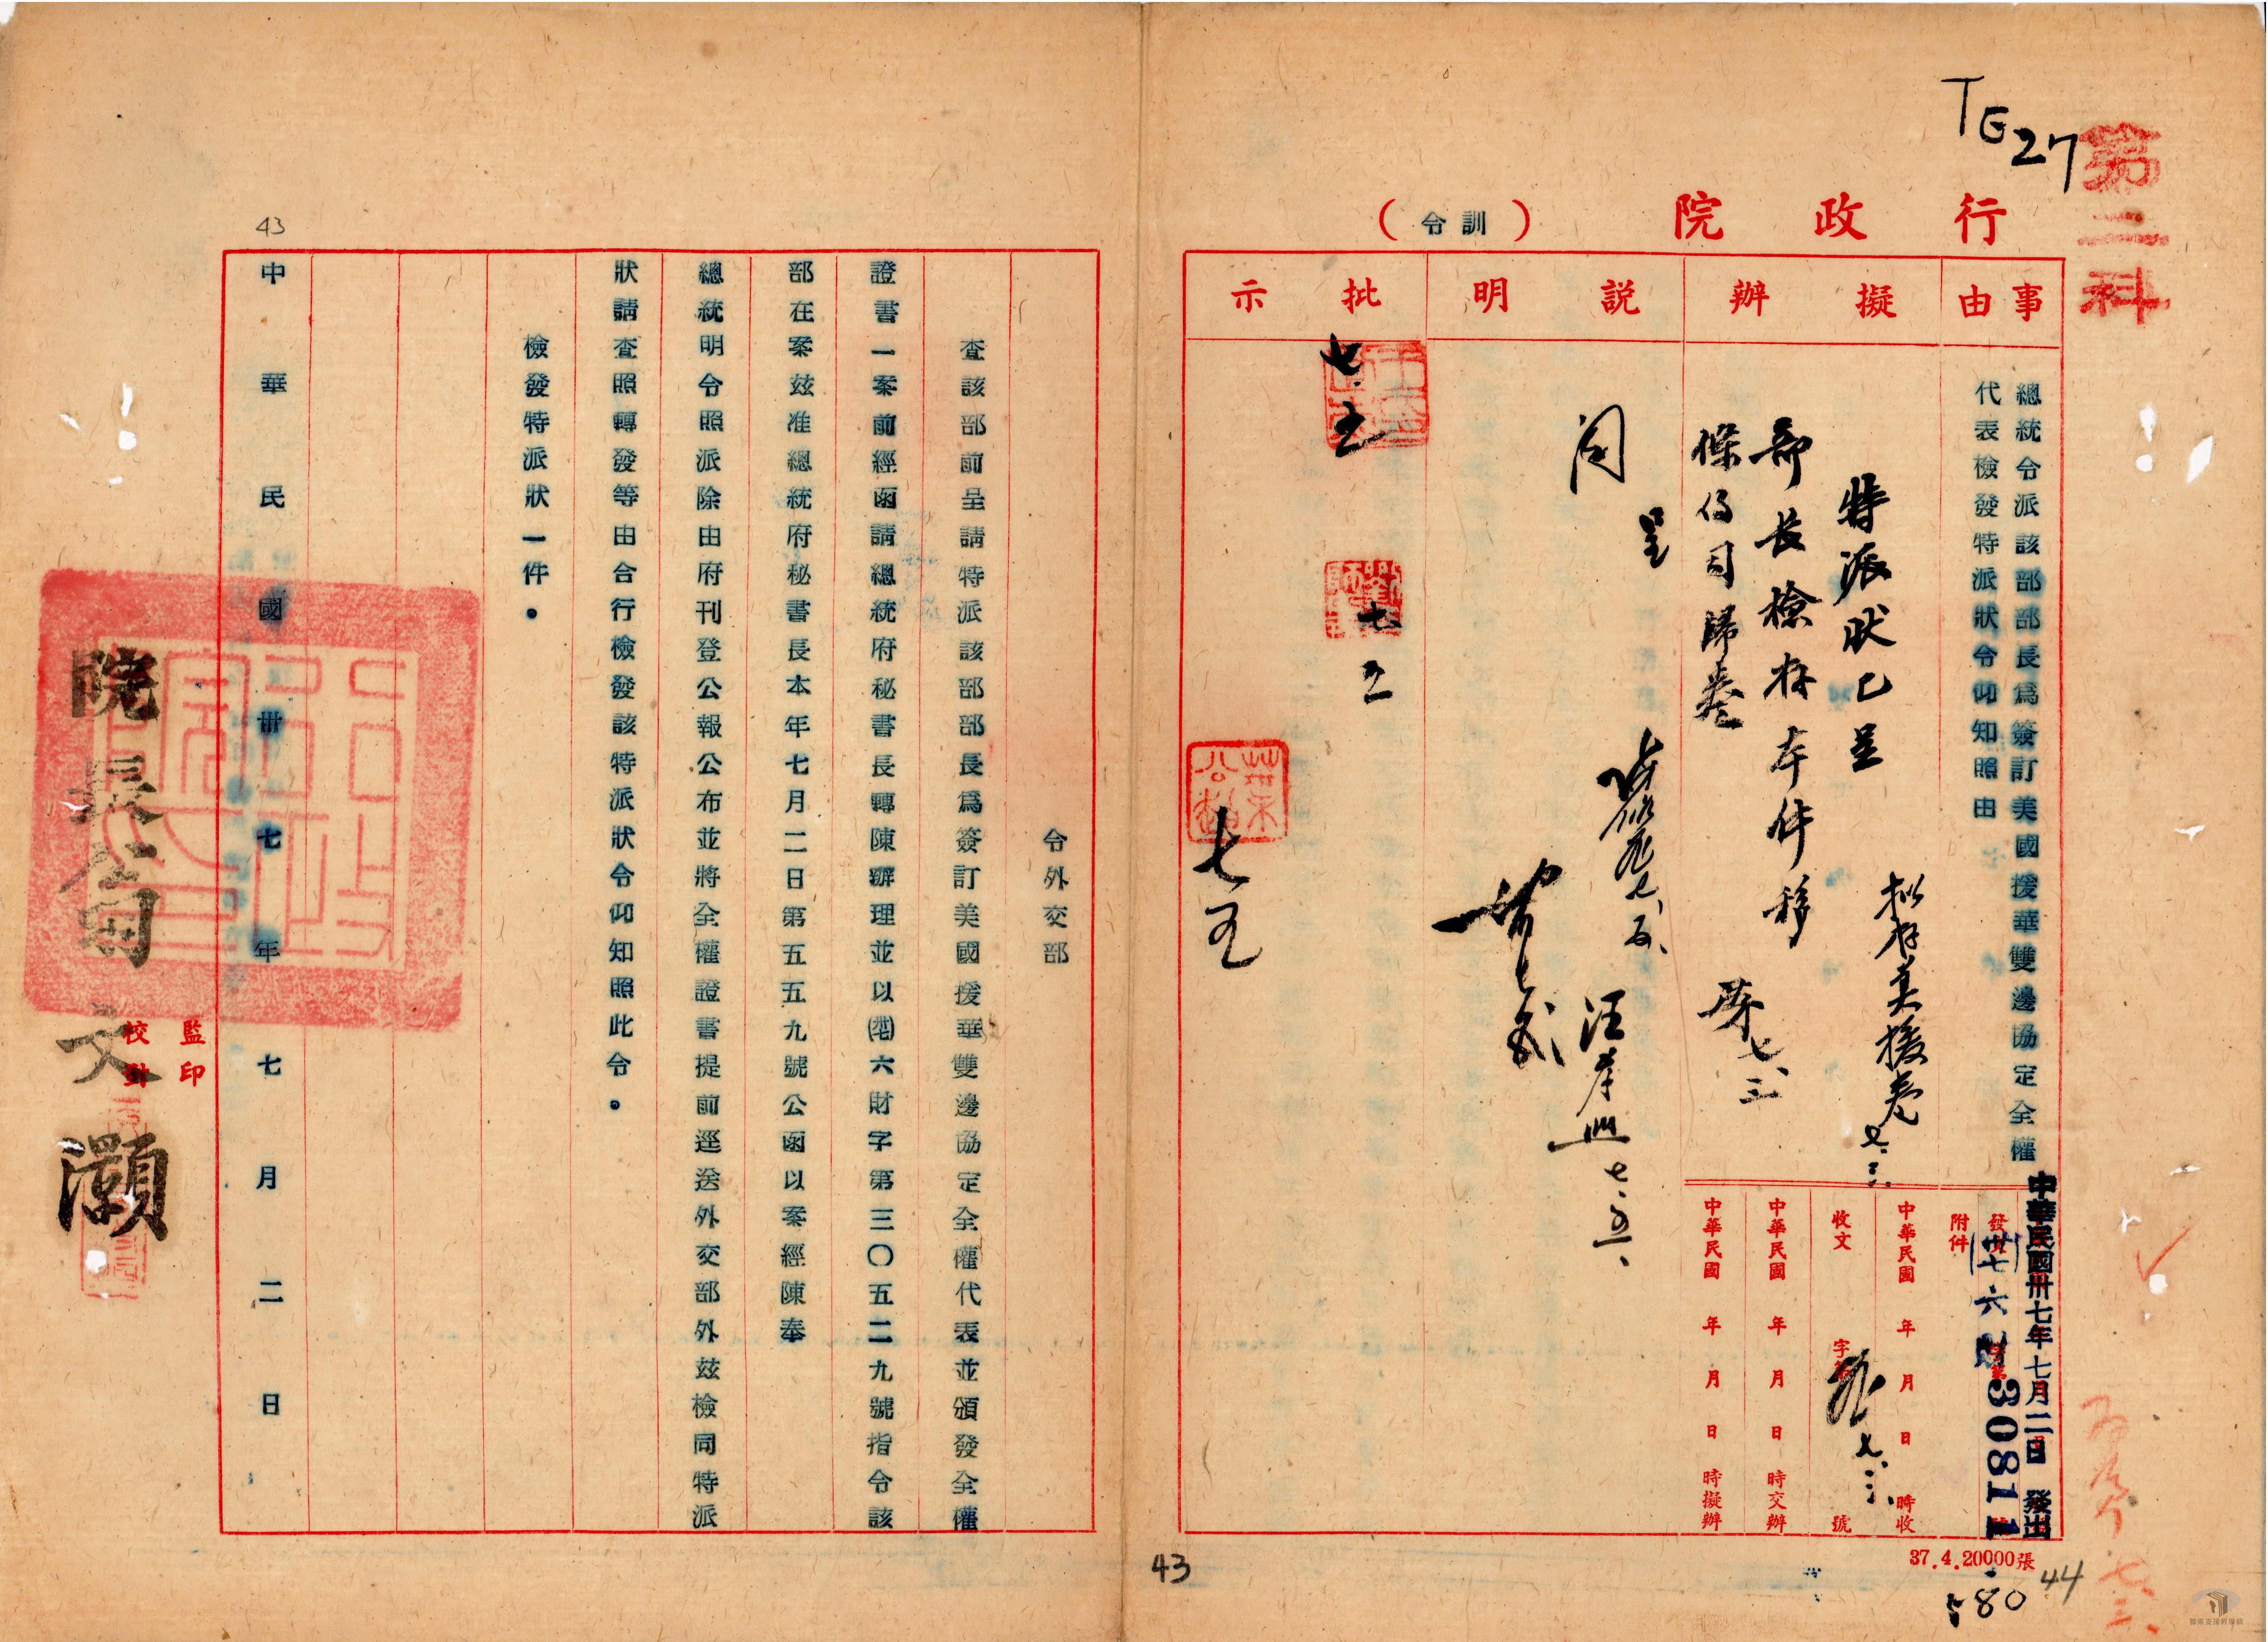 TG27
第三科
行政院（訓令）
事由
總統令派該部部長為簽訂美國援華雙邊協定全權
代表檢發特派狀令仰知照由
擬辦
擬存美援卷
七.三.
特派狀已呈
部長檢存本件移
條約司歸卷
七、三
説明
呈
閱
七、五、
汪孝熙 七、五、
批示
七.五
七
葉公超
七五
中華民國卅七年七月二日 發出
發文 (卅七)六財字第30811號
附件
中華民國 年 月 日 時收
收文 字第 號
七.三.
中華民國 年 月 日 時交辦
中華民國 年 月 日 時擬辦
37.4.20000張
580
44
43
令外交部
查該部前呈請特派該部部長為簽訂美國援華雙邊協定全權代表並頒發全權
證書一案前經函請總統府秘書長轉陳辦理並以(卅七)六財字第三〇五二九號指令該
部在案茲准總統府秘書長本年七月二日第五五九號公函以案經陳奉
總統明令照派除由府刊登公報公布並將全權證書提前逕送外交部外茲檢同特派
狀請查照轉發等由合行檢發該特派狀令仰知照此令。
檢發特派狀一件。
中華民國卅七年七月二日
43
監印
校對
院長翁文灝
檔案支援教學網